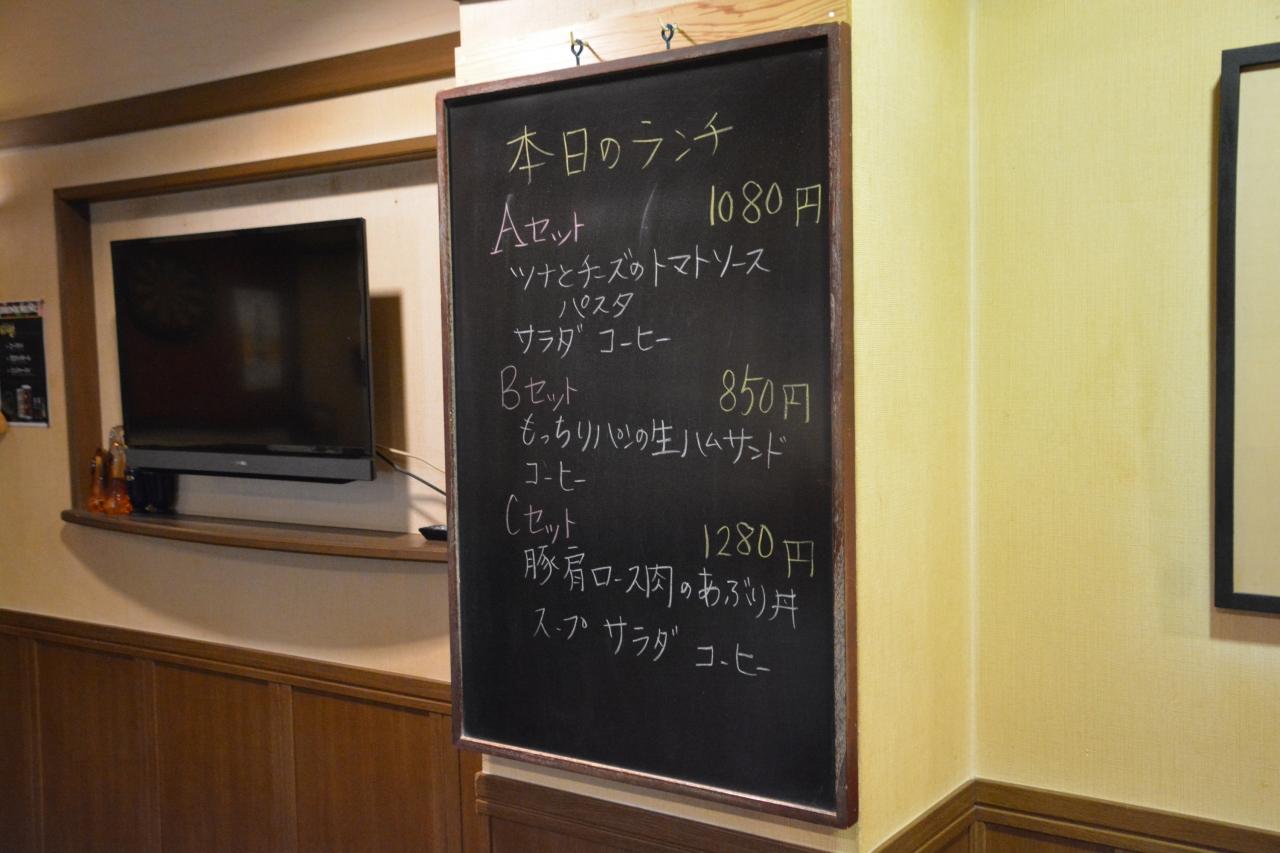 本日のランチ
Aセット 1080円
ツナとチーズのトマトソース
パスタ
サラダ コーヒー
Bセット 850円
もっちりパンの生ハムサンド
コーヒー
Cセット 1280円
豚肩ロース肉のあぶり丼
スープ サラダ コーヒー